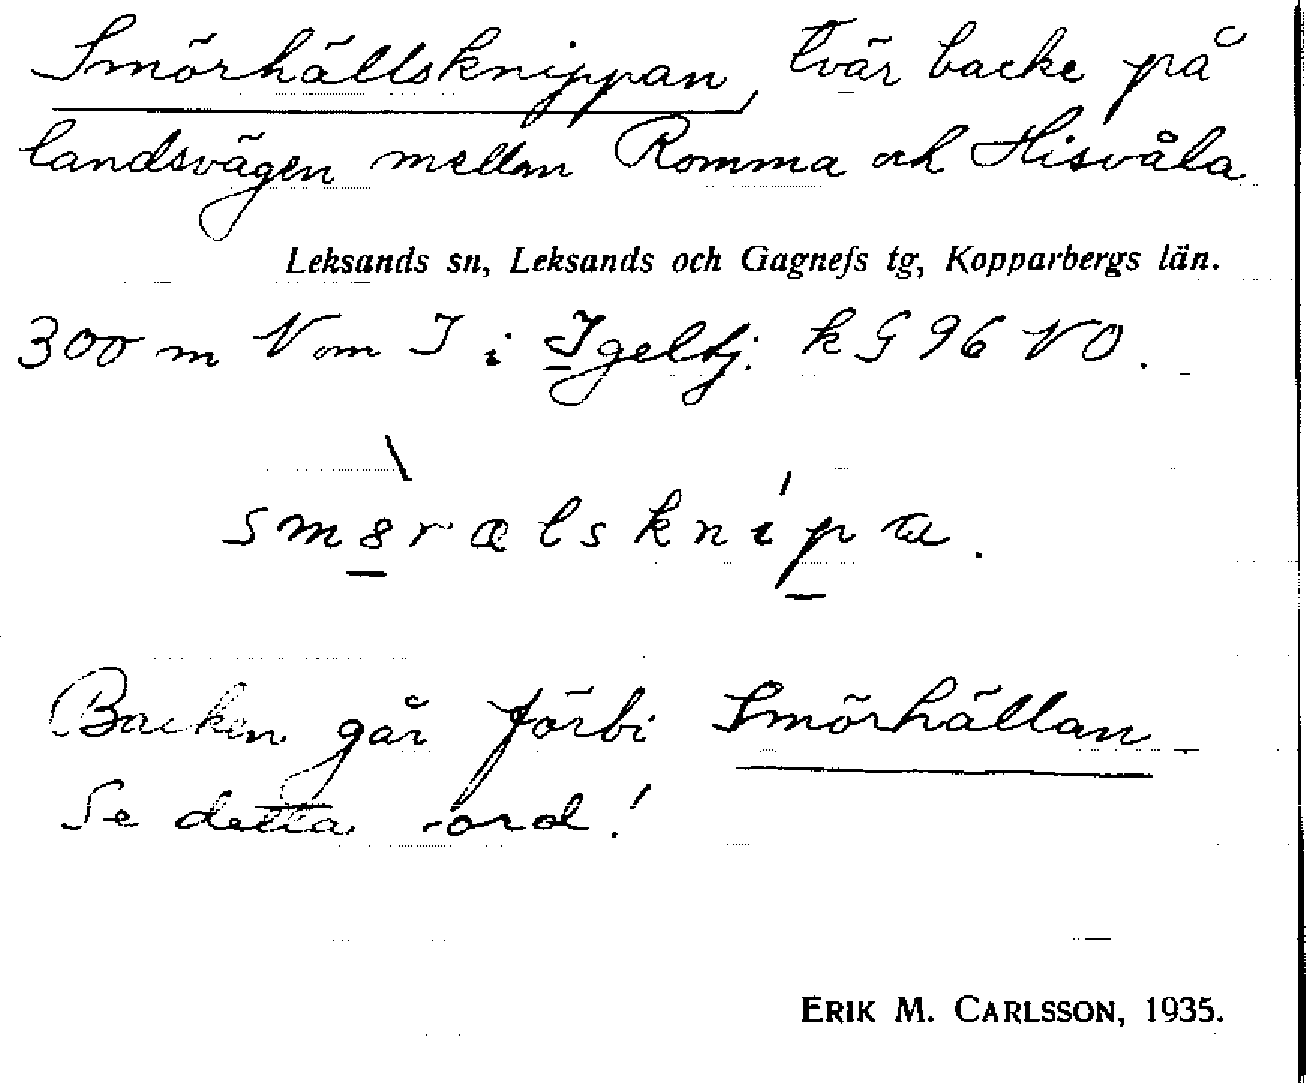 Smörhällsknippan, tvär backe på
landsvägen mellan Romma och Hisvåla
Leksands sn, Leksands och Gagnefs tg, Kopparbergs län.
300 m N om I i Igeltj. k G 96 NO.
sm8rælsknípa.
Backen går förbi Smörhällan
Se detta ord!
ERIK M. CARLSSON, 1935.